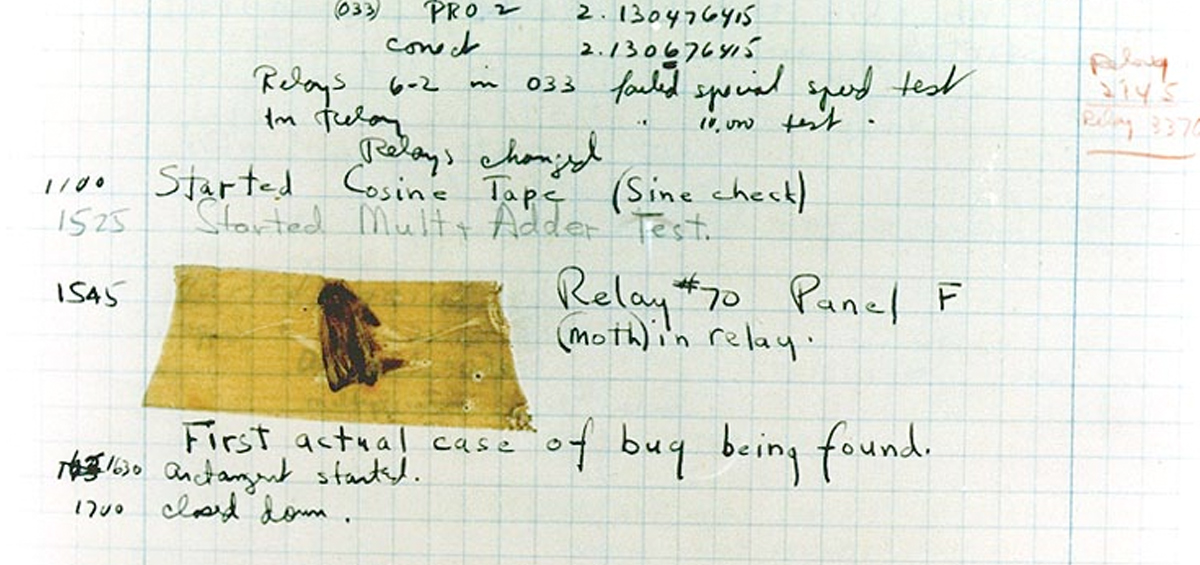 (033) PRO 2 2.130476415
conect 2.130676415
Relays 6-2 in 033 failed special speed test
In Relay " 10,000 test .
Relays changed
1100 Started Cosine Tape (Sine check)
1525 Started Mult + Adder Test.
1545 Relay #70 Panel F
(moth) in relay.
First actual case of bug being found.
1630 arctangent started.
1700 closed down .
Relay
2145
Relay 337